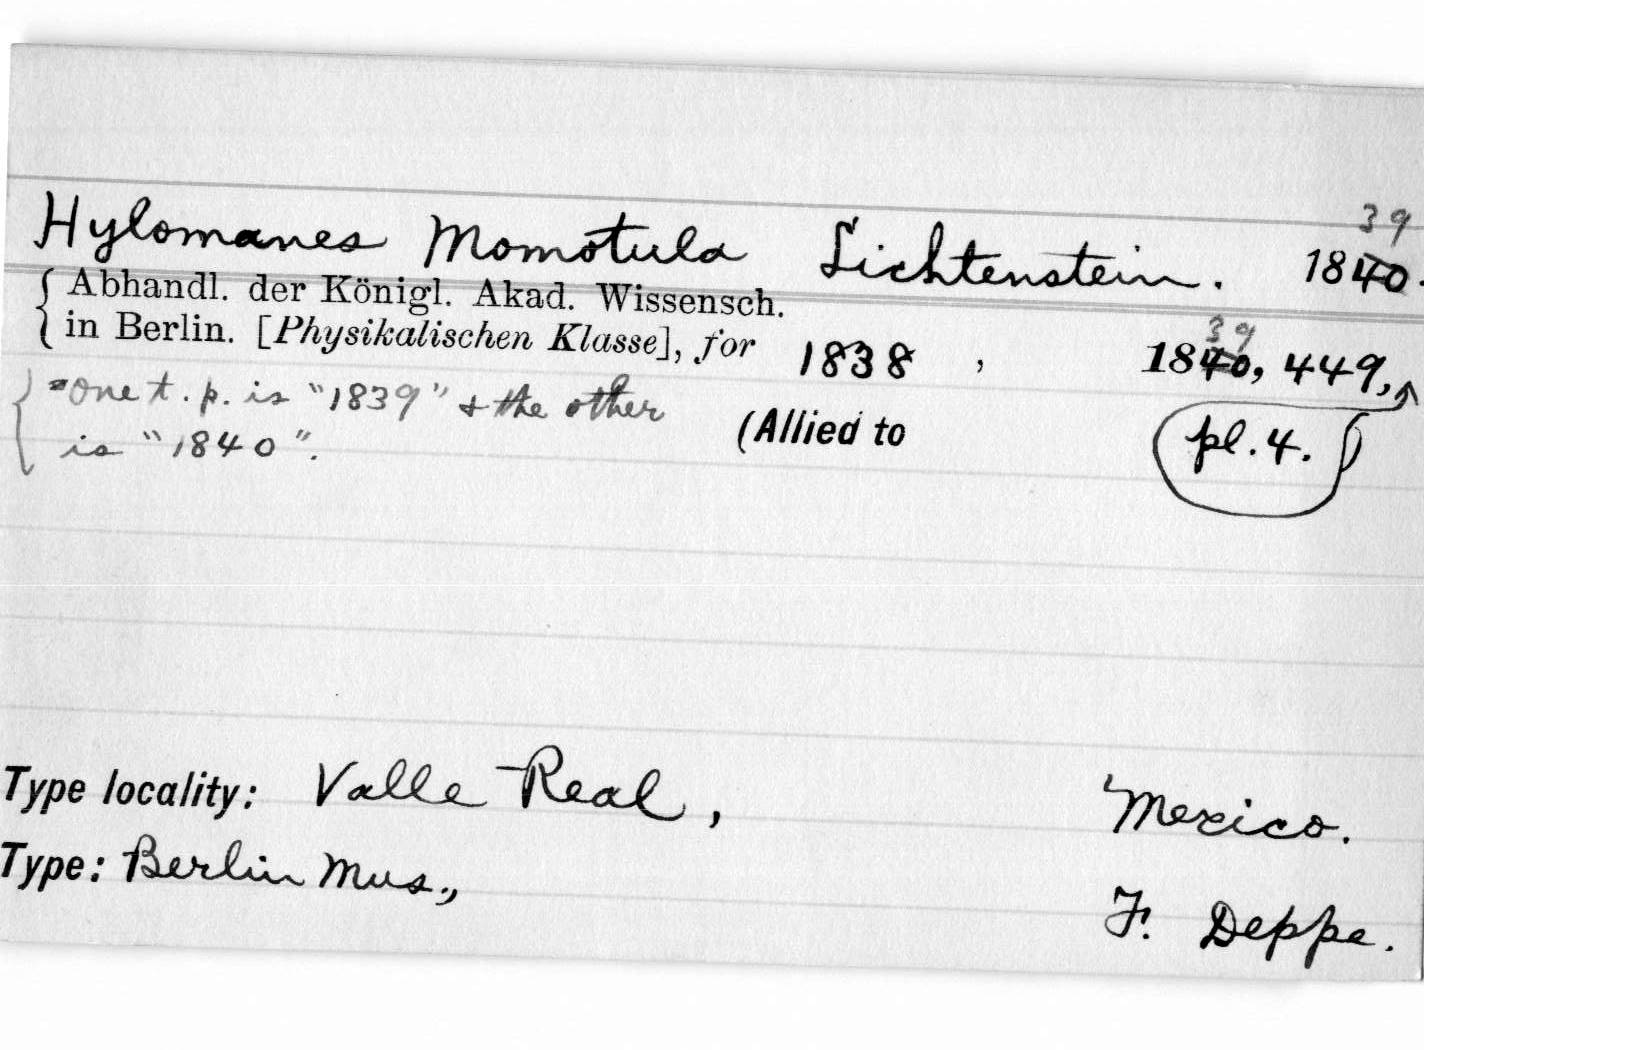 Hylomanes Momotula Lichtenstein. 1840.
39
Abhandl. der Königl. Akad. Wissensch.
in Berlin. [Physikalischen Klasse], for 1838, 1840, 449,
39
=one t.p. is "1839" & the other
is "1840".
(Allied to
pl. 4.
Type locality: Valle Real, Mexico.
Type: Berlin Mus., F. Deppe.